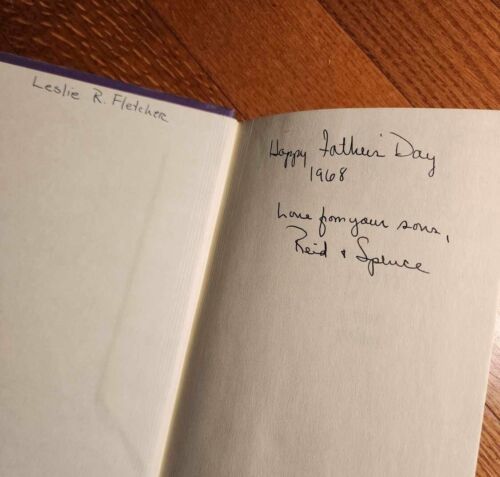 Leslie R. Fletcher
Happy Father's Day
1968
Love from your sons,
Reid & Spruce